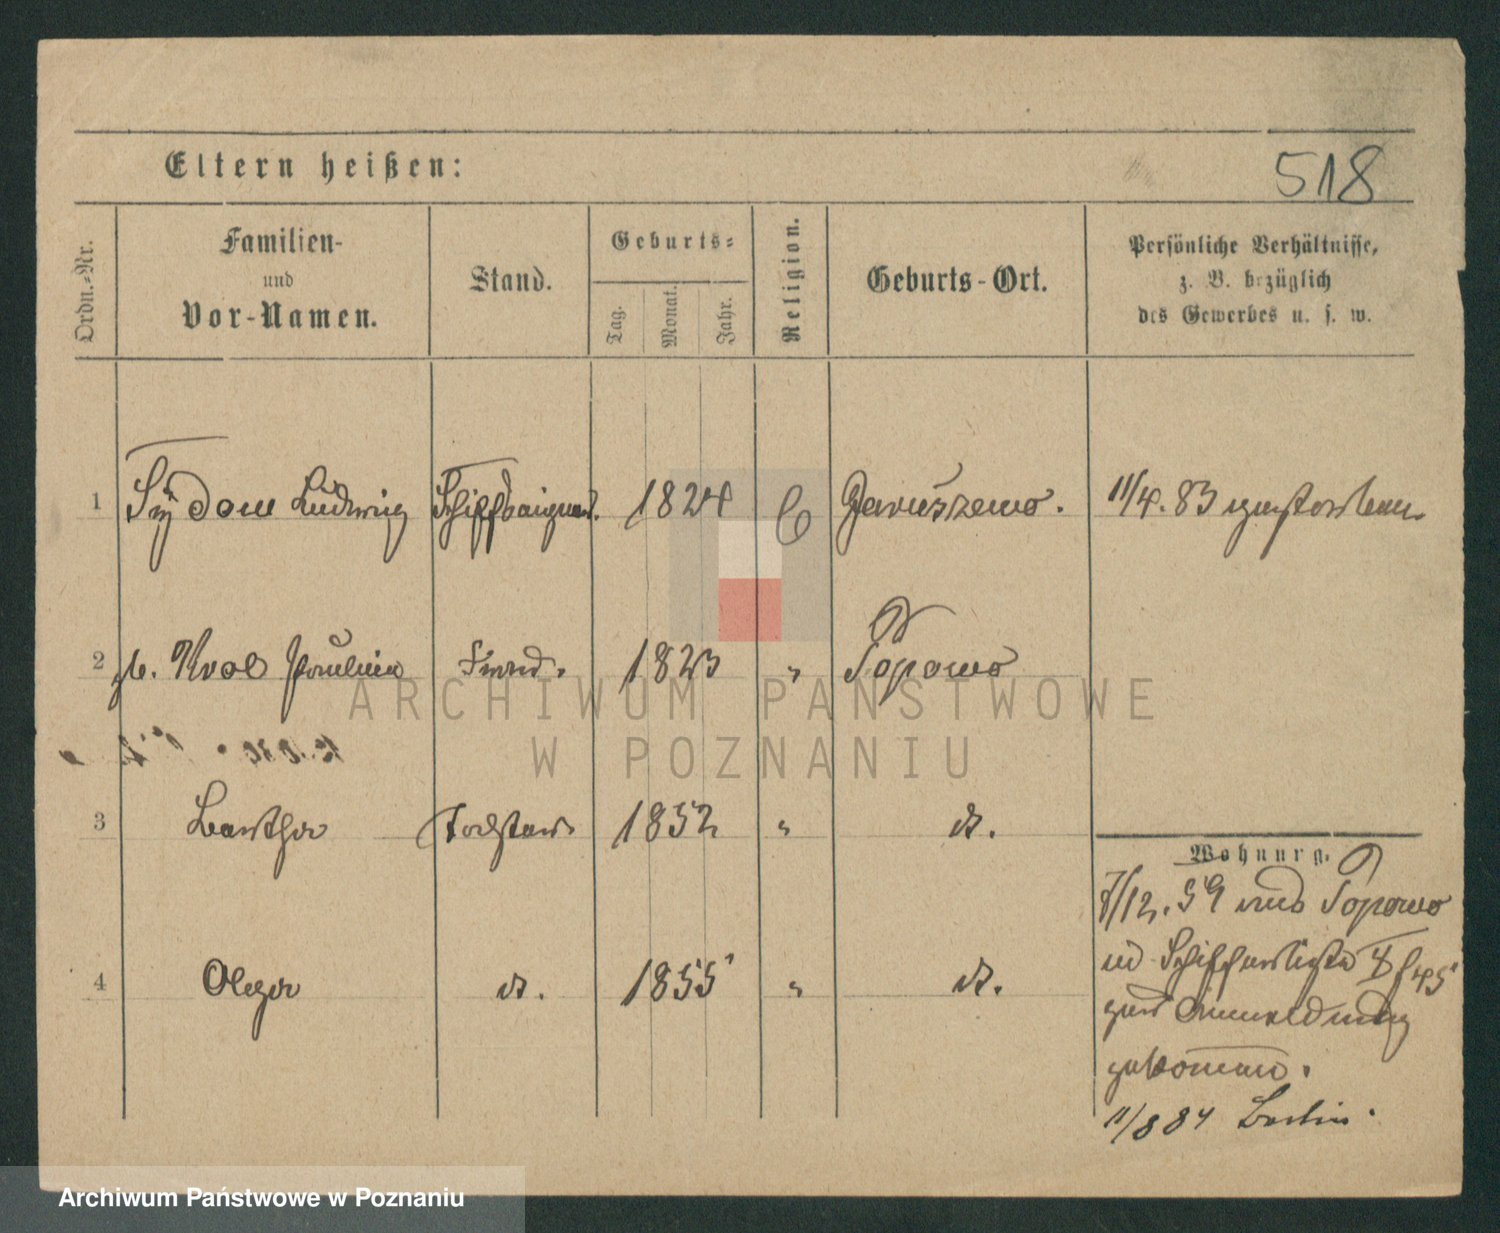 Eltern heißen:
518
Ordn.-Nr.
Familien-
und
Vor-Namen.
Stand.
Geburts-
Tag.
Monat.
Jahr.
Religion.
Geburts-Ort.
Persönliche Verhältnisse,
z. B. bezüglich
des Gewerbes u. s. w.
1 Sydow Ludwig Schiffseigent. 1824 C Jaruszewo. 11/4. 83 gestorben
2 g. Krol Paulina Frau. 1823 " Popowo
3 Bertha Tochter 1852 " dt.
4 Olga dt. 1855 " dt.
Wohnung.
8/12. 59 von Popowo
in
zur Anmeldung
gekommen.
11/8 84 Berlin.
ARCHIWUM PAŃSTWOWE
W POZNANIU
Archiwum Państwowe w Poznaniu